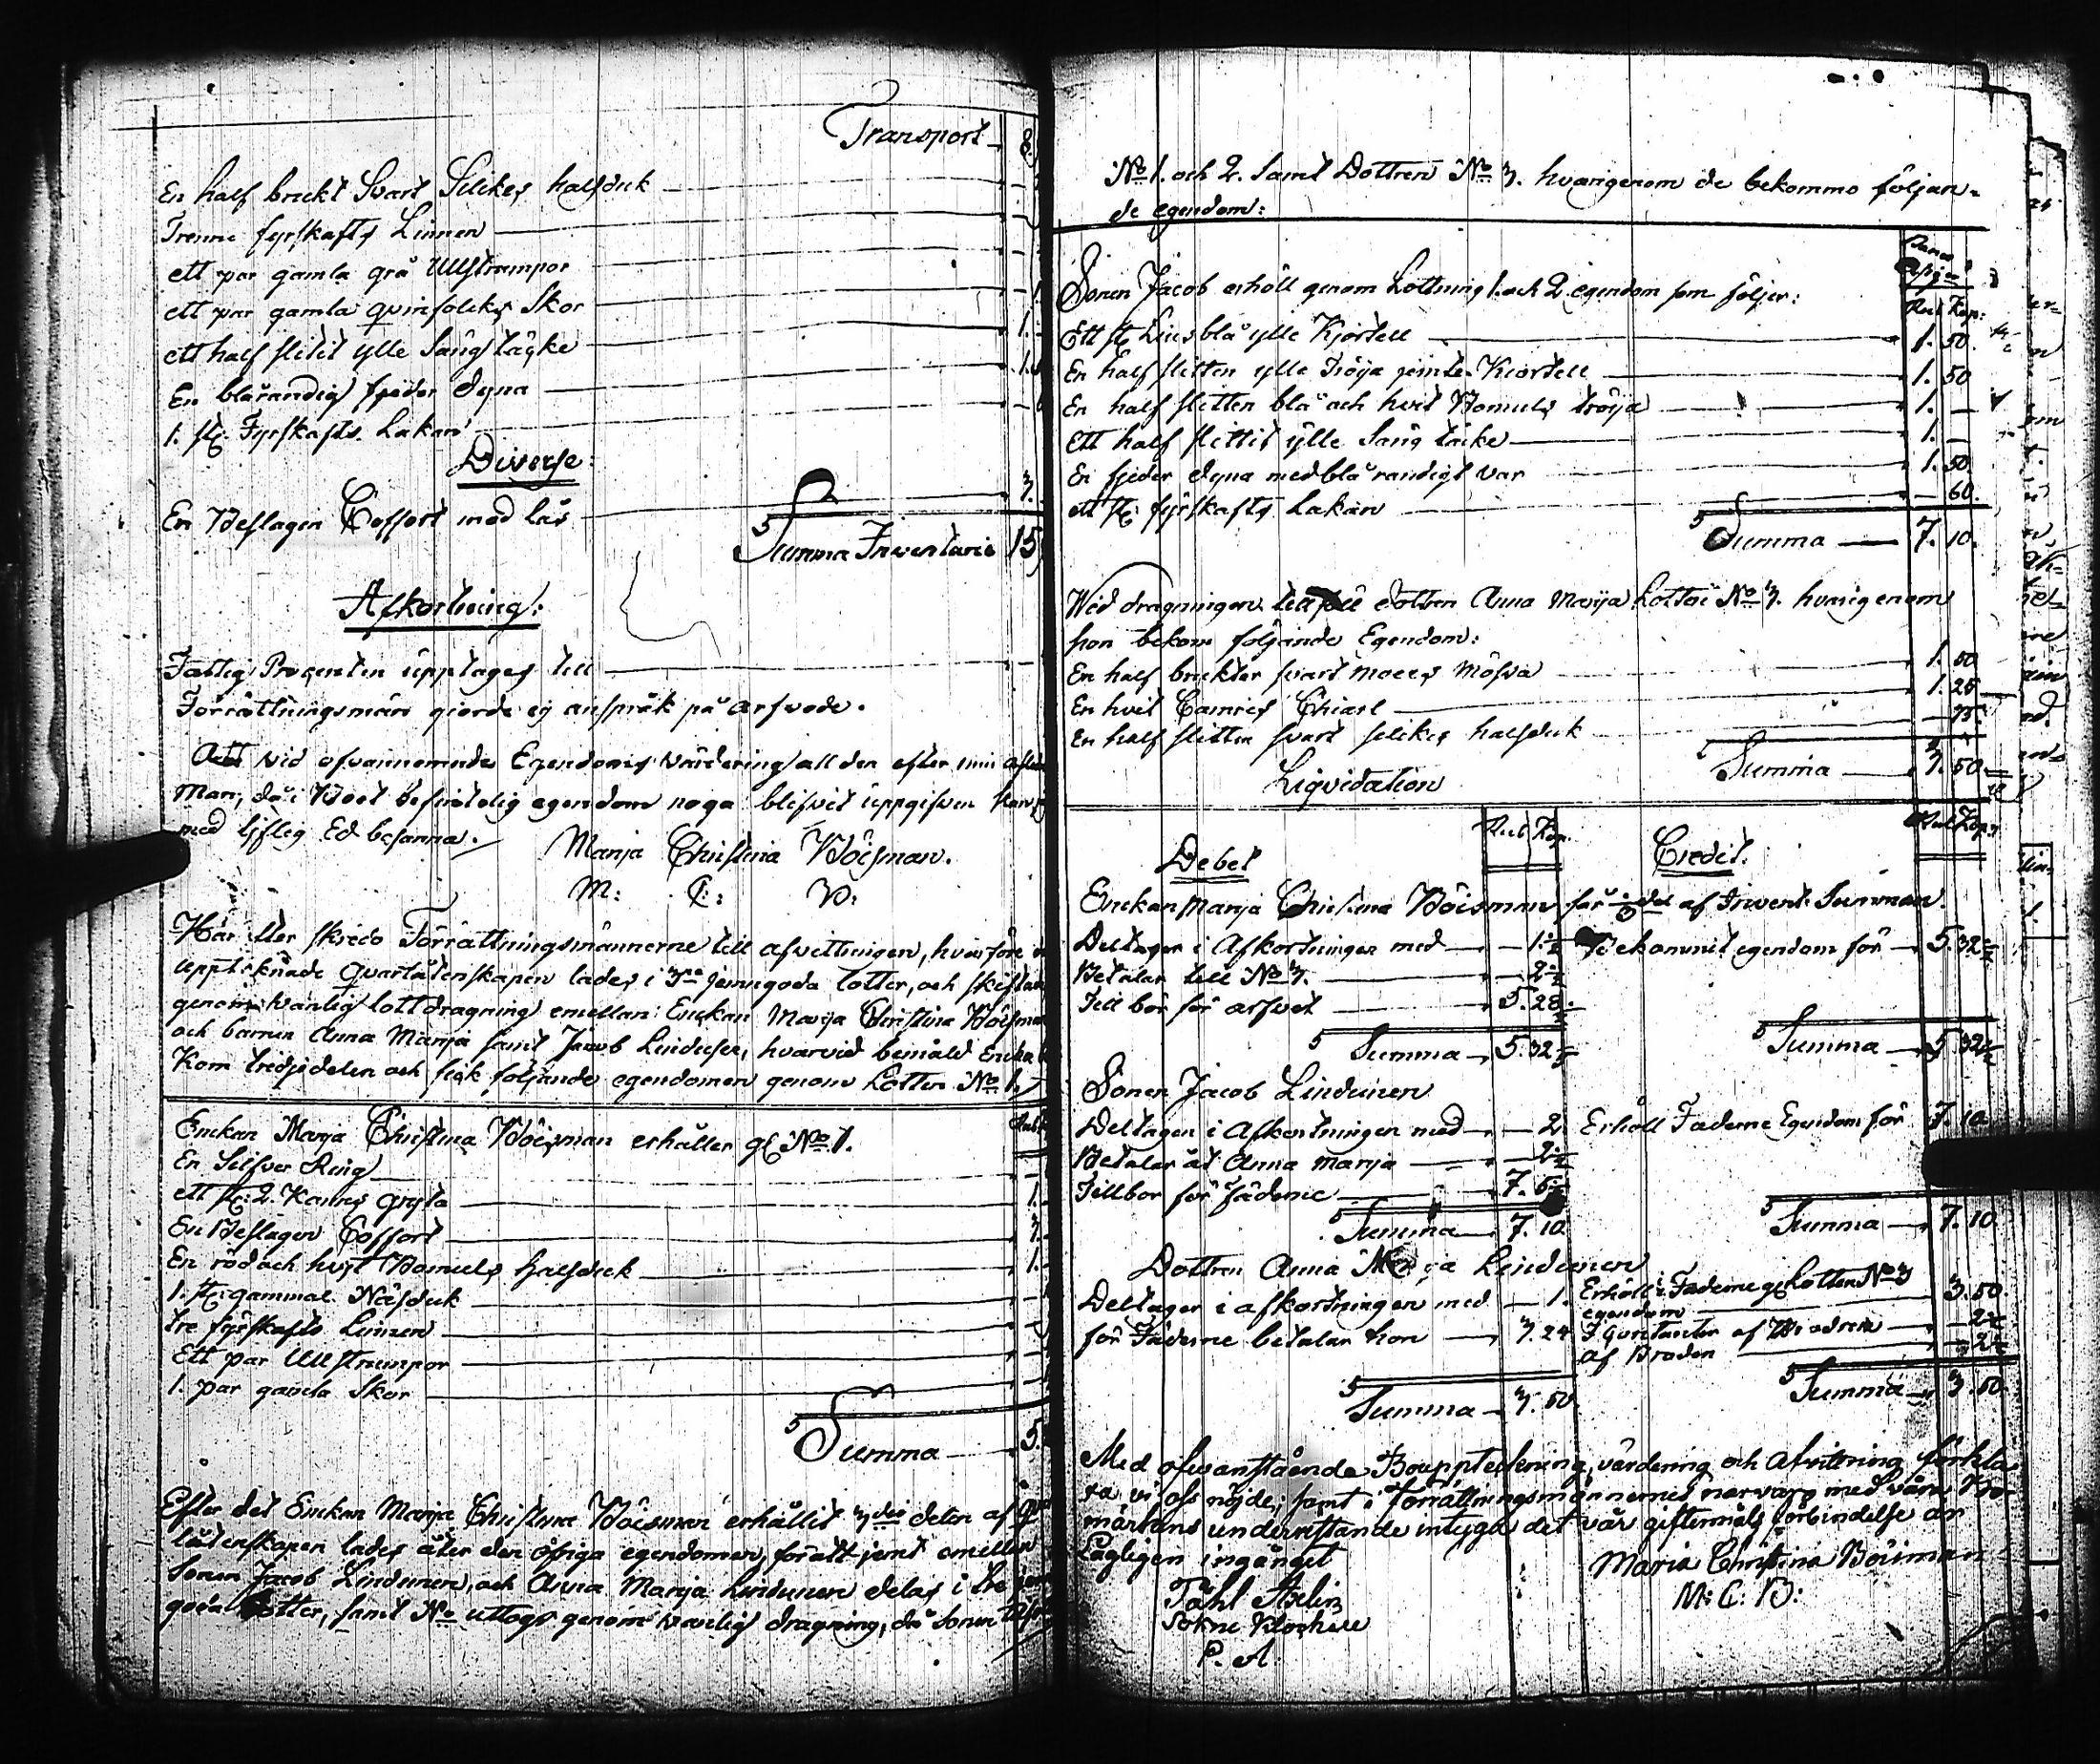 Transport 8.
En half brukt Svart Silkes halsduk
Trenne fyrskafts Linnen
ett par gamla grå Ullstrumpor
ett par gamla qvinfolcks Skor
ett half slitit ylle Säng täcke 1.
En blårandig fjeder dyna 1.
1. st. Fyrskafts Lakan
Diverse:
En Beslagen Coffort med lås 3.
Summa Inventarie 15
Afkortning:
Fattig Procenten upptages till
Förrättningsmän gjorde ej anspråk på arfvode.
Att vid ofvannemnde Egendoms värdering all den efter min
Man, då i Boet befintelig egendom noga blifvit uppgifven
med liflig Ed besanna.
Marja Christina Böisman.
M: C: B:
Här efter skredo Förrättningsmännerne till afvittningen, hvarföre
uppteknade qvarlåtenskapen lades i 3ne jemngoda lotter, och skiftas
genom vanlig lottdragning emellan: Enckan Marja Christina Böisman
och barnen Anna Marja samt Jacob Lindunen, hvarvid bemäld Encka
kom tredjedelen och fick följande egendomen genom Lotten No 1.
Enckan Marja Christina Böisman erhåller gl. No 1.
En Silfver Ring
ett st. 2. Kannes gryta 1.
En Beslagen Coffort 3.
En röd och hvit Bomuls halsduk 1.
1. st. gammal Näsduk
tre fyrskafts Linnen
Ett par Ullstrumpor
1. par gamla Skor
Summa 5.
Efter det Enckan Marja Christina Böisman erhållit 3die delen af
låtenskapen lades åter den öfriga egendomen, för att jemt emellan
Sonen Jacob Lindunen, och Anna Marja Lindunen delas i tre
goda Lotter, samt No uttogs genom vanlig dragning, då Sonen
No 1. och 2. samt Dottren No 3. hvarigenom de bekommo följan-
de egendom:
Sonen Jacob erhöll genom Lottning 1. och 2. egendom som följer:
Rub. Kop:
Ett st. Liusblå ylle Kjortell 1. 50
En half slitten ylle Tröija jemte Kiortell 1. 50
En half slitten blå och hvit Bomuls tröija 1. —
Ett half slittit ylle Säng täcke 1. —
En fjeder dyna med blå randigt var 1. 50
ett st. fyrskafts Lakan — 60.
Summa 7. 10.
Wid dragningen tillföll dottren Anna Marja Lotten No 3. hvarigenom
hon bekom följande Egendom:
En half brukter svart Mössa 1. 50
En hvit Camrics 1. 25
En half slitten svart silkes halsduk — 75
Summa 3. 50
Liqvidation
Debet
Rub. Kop.
Credit.
Rub. Kop:
Enckan Marja Christina Böisman får 1/3 del af Invent. Summan
Deltager i Afkortningen med — 1 1/2
Bekommit egendom för 5. 32 1/2
Betalar till No 3. — 2 1/2
Till bör för arfvet 5. 28 1/2
Summa 5. 32 1/2
Summa 5. 32 1/2
Sonen Jacob Lindunen
Deltagen i Afkortningen med — 2.
Erhöll Fäderne Egendom för 7. 10
Betalar åt Anna Marja — 2 1/2
Tillbör för fäderne 7. 5 1/2
Summa 7. 10
Summa 7. 10
Dottren Anna Marja Lindunen
Deltager i afkortningen med — 1.
Erhöll i Fäderne gl. Lotten No 3
egendom 3. 50
för Fäderne betalar hon 3. 24
af Modren — 2 1/2
af Broder — 2 1/2
Summa 3. 50
Summa 3. 50
Med ofvanstående Bouppteckning, värdering och afvittring förkla-
ra vi oss nöjde, samt i Förrättningsmännernes närvaro med våra Bo-
märkens understående intyga det vår giftermåls förbindelse är
Lagligen ingånget
Maria Christina Böisman
M: C: B:
Påhl Axelin
Sokne Klockare
P. A.